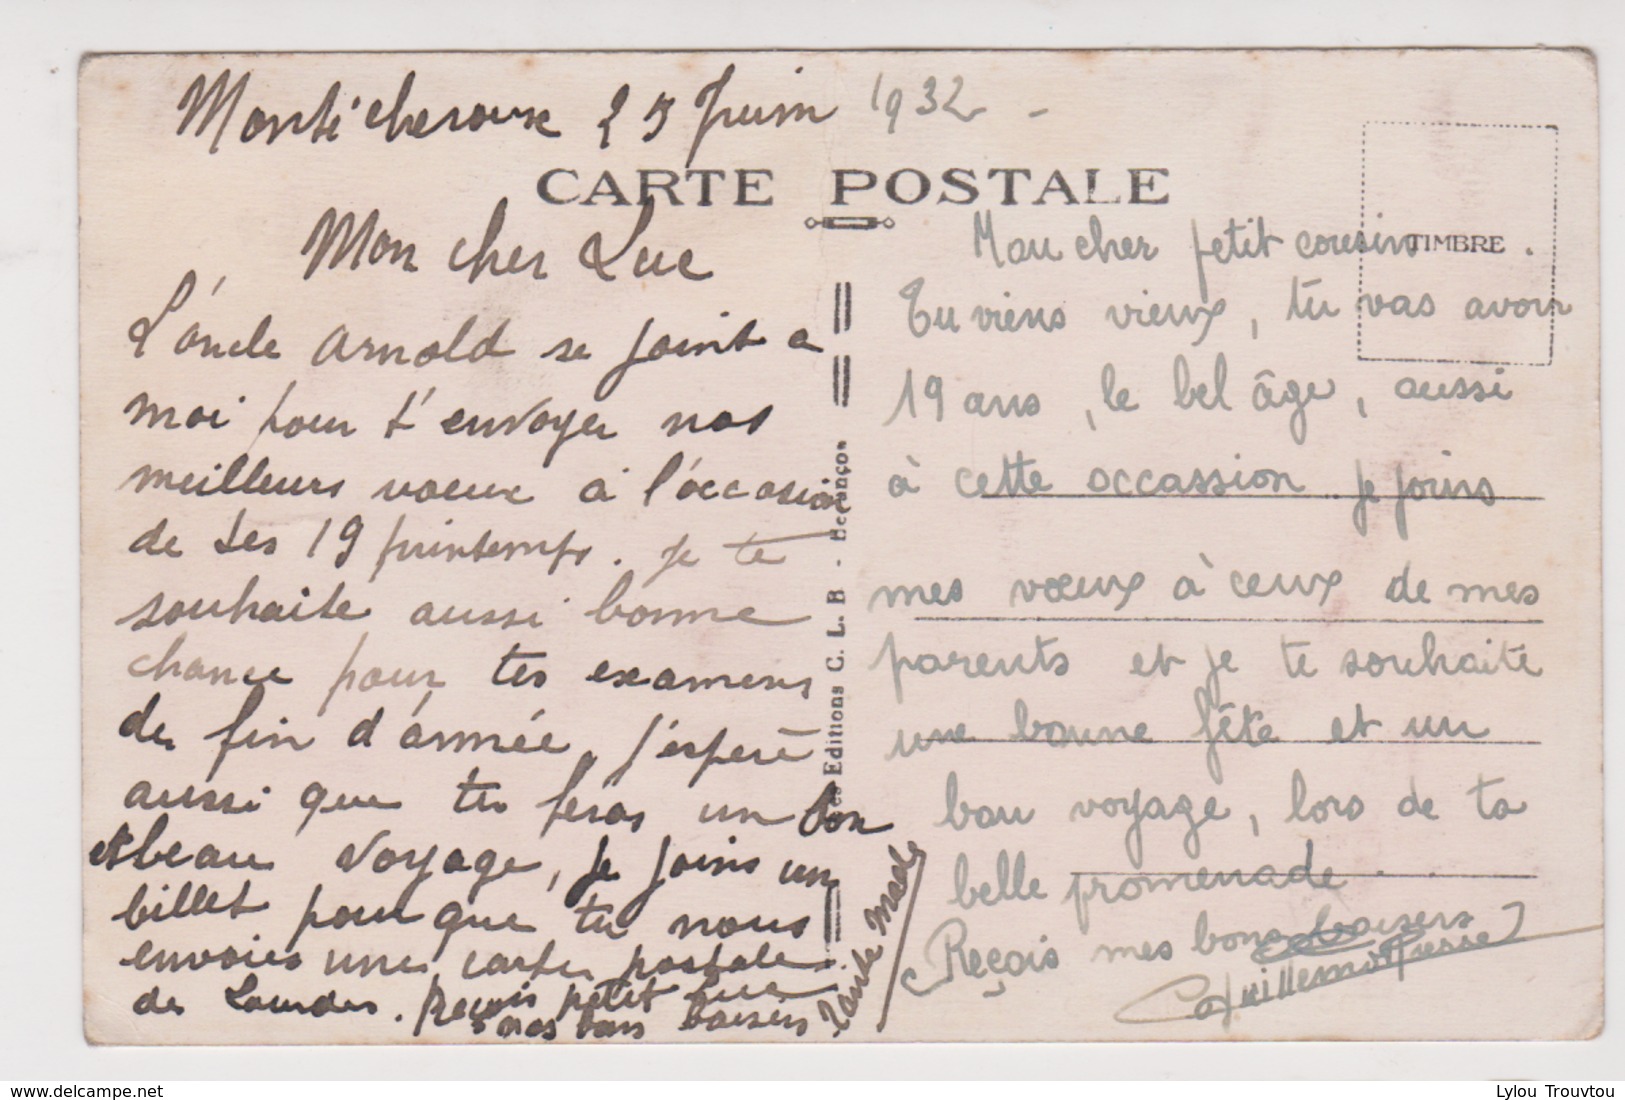 Montécheroux 25 Juin 1932 -
CARTE POSTALE
TIMBRE
Mon cher Luc
L'oncle Arnold se joint a
moi pour t'envoyer nos
meilleurs voeux à l'occasion
de tes 19 printemps. je te
souhaite aussi bonne
chance pour tes examens
de fin d'année, j'espère
aussi que tu feras un bon
et beau voyage, je joins un
billet pour que tu nous
envoies une carte postale
de Lourdes. Reçois petit Luc
nos bons baisers
Tante Made
Les Editions C. L. B - Besançon
Mon cher petit cousin.
Tu viens vieux, tu vas avoir
19 ans, le bel âge, aussi
à cette occassion je joins
mes vœux à ceux de mes
parents et je te souhaite
une bonne fête et un
bon voyage, lors de ta
belle promenade.
Reçois mes bons baisers
Lylou Trouvtou